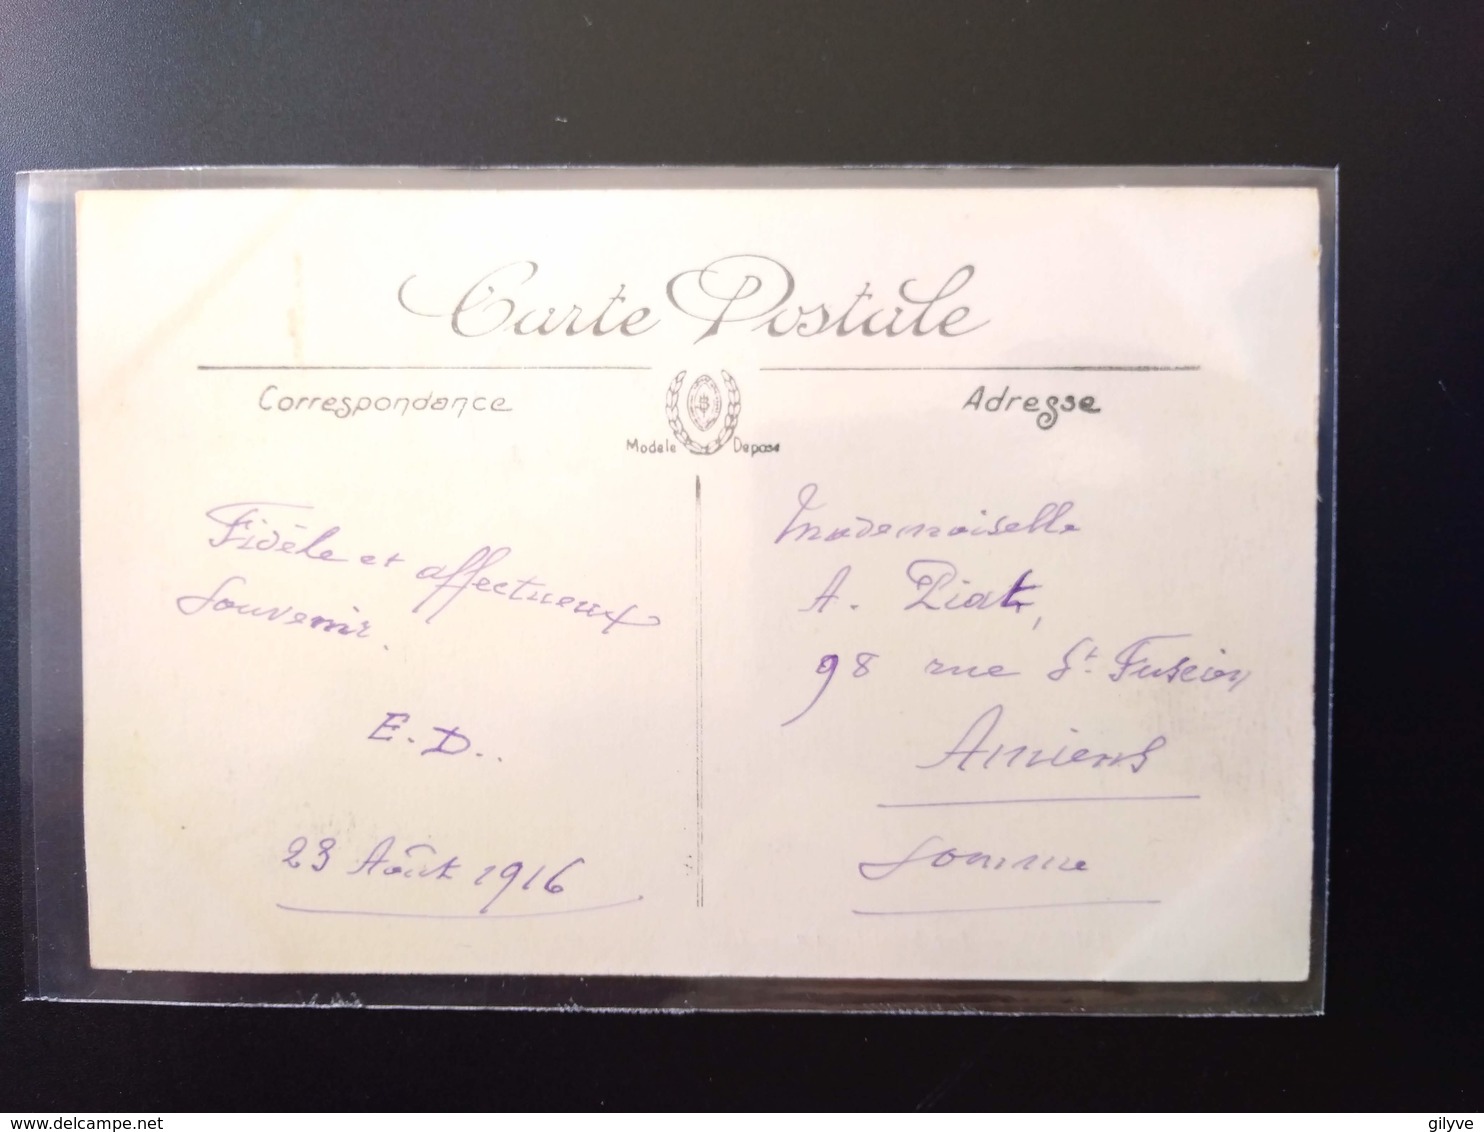 Carte Postale
Correspondance
Adresse
Modele Depose
Fidèle et affectueux
Souvenir.
E. D..
23 Août 1916
Mademoiselle
A. Piat,
98 rue St Fuscien
Amiens
Somme
delcampe.net
gilyve